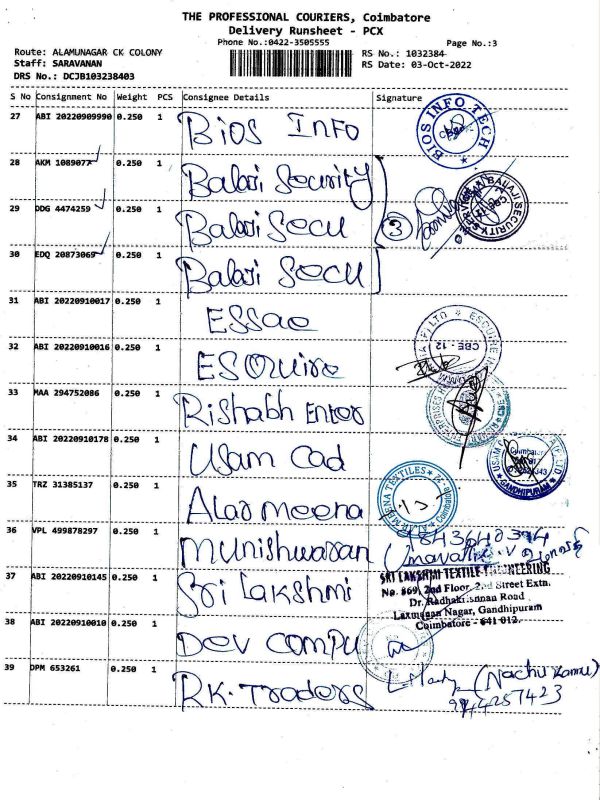 THE PROFESSIONAL COURIERS, Coimbatore
Delivery Runsheet - PCX
Phone No.:0422-3505555
Page No.:3
Route: ALAMUNAGAR CK COLONY
RS No.: 1032384
Staff: SARAVANAN
RS Date: 03-Oct-2022
DRS No.: DCJB103238403
S No Consignment No Weight PCS Consignee Details Signature
27 ABI 20220909990 0.250 1 Bios Info
BIOS INFO TECH
28 AKM 1089077 0.250 1 Balaji Security
BALAJI SECURITY
29 DDG 4474259 0.250 1 Balaji Secu 3
30 EDQ 20873069 0.250 1 Balaji Secu
31 ABI 20220910017 0.250 1 ESSae
32 ABI 20220910016 0.250 1 ESQuire
CBE - 12
33 MAA 294752086 0.250 1 Rishabh Enter
34 ABI 20220910178 0.250 1 Usam Cad
GANDHIPURAM
35 TRZ 31385137 0.250 1 Alar meena
MEENA TEXTILES
Coimbatore
36 VPL 499878297 0.250 1 Munishwaran
37 ABI 20220910145 0.250 1 Sri Lakshmi
SRI LAKSHMI TEXTILE ENGINEERING
No. 869, 2nd Floor, 2nd Street Extn.
Dr. Radhakrishnan Road
Laxmanan Nagar, Gandhipuram
Coimbatore - 641 012.
38 ABI 20220910010 0.250 1 Dev Compu
39 DPM 653261 0.250 1 RK. Traders